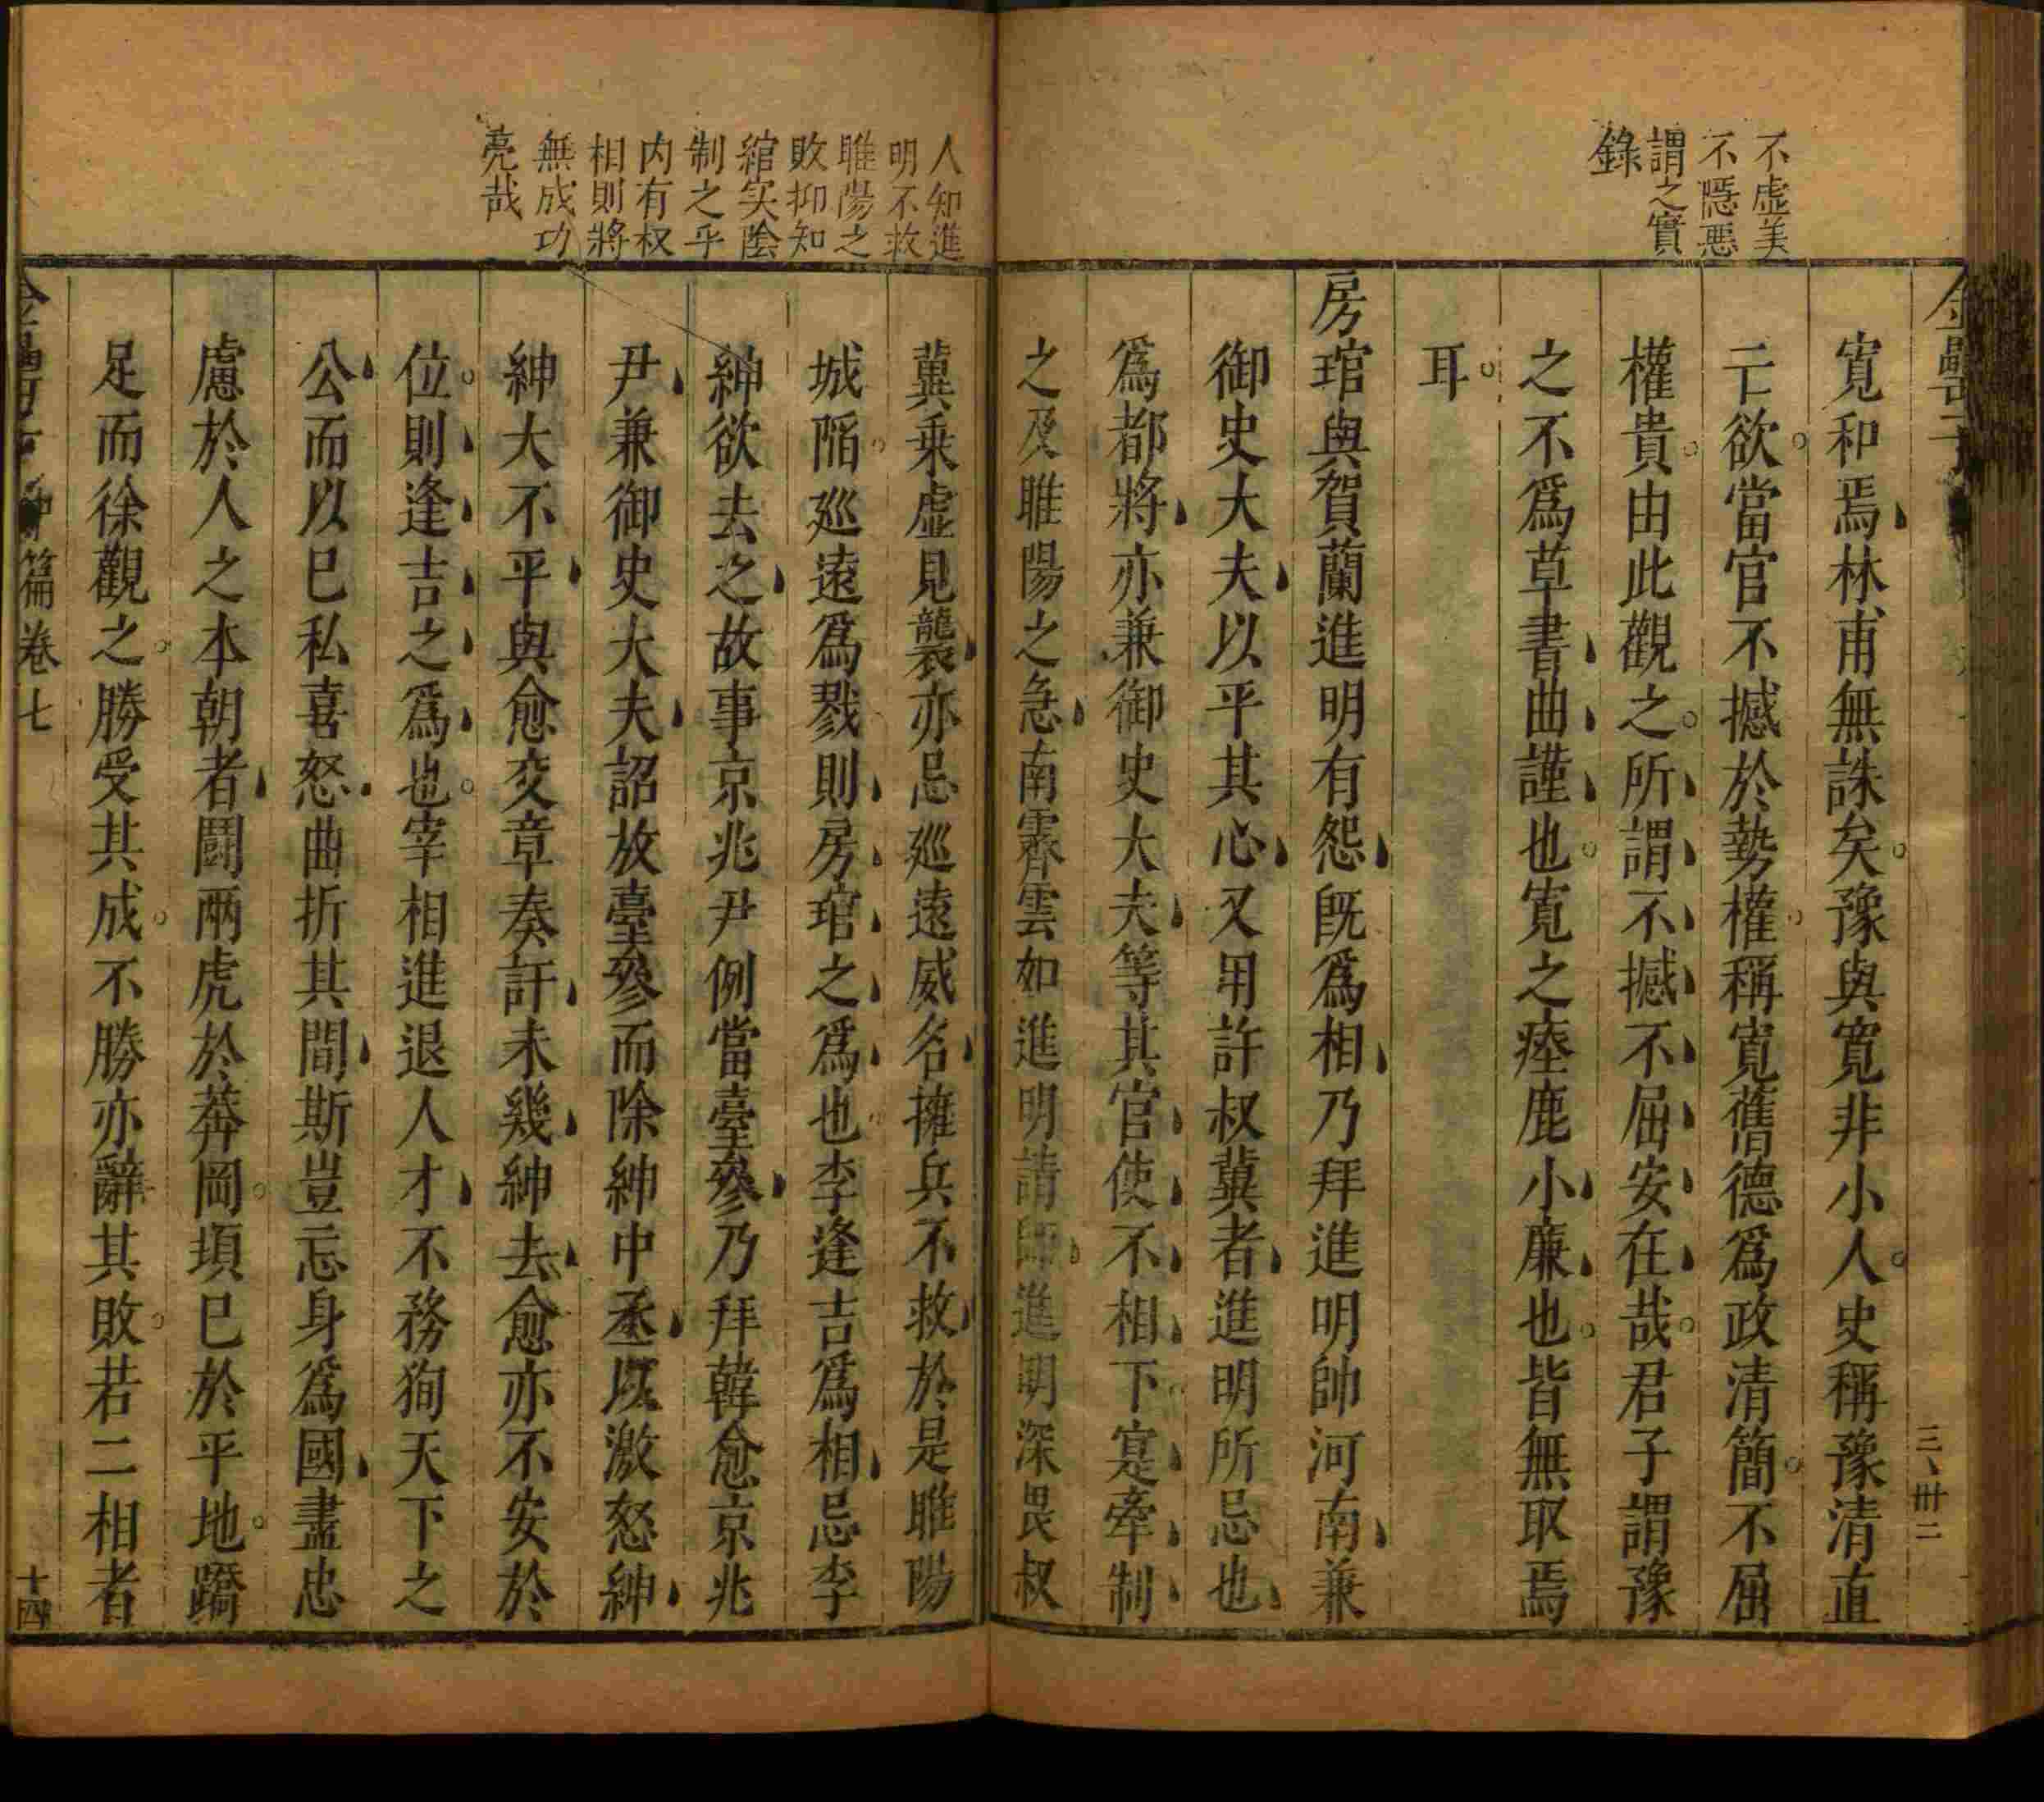 不虛美
不隱惡
謂之實
錄
寬和焉林甫無誅矣豫與寬非小人史稱豫清直
亡欲當官不撼於勢權稱寬舊德爲政清簡不屈
權貴由此觀之所謂不撼不屈安在哉君子謂豫
之不爲草書曲謹也寬之瘞鹿小廉也皆無取焉
耳
房琯與賀蘭進明有怨既爲相乃拜進明帥河南兼
御史大夫以平其心又用許叔冀者進明所忌也
爲都將亦兼御史大夫等其官使不相下寔牽制
之及睢陽之急南霽雲如進明請師進明深畏叔
人知進
明不救
睢陽之
敗抑知
綰实陰
制之乎
内有权
相則將
無成功
亮哉
冀乘虛見襲亦忌巡遠威名擁兵不救於是睢陽
城陷巡遠爲戮則房琯之爲也李逢吉爲相忌李
紳欲去之故事京兆尹例當臺參乃拜韓愈京兆
尹兼御史大夫詔放臺參而除紳中丞以激怒紳
紳大不平與愈交章奏訐未幾紳去愈亦不安於
位則逢吉之爲也宰相進退人才不務狥天下之
公而以已私喜怒曲折其間斯豈忘身爲國盡忠
慮於人之本朝者鬪兩虎於莾岡項已於平地蹯
足而徐觀之勝受其成不勝亦辭其敗若二相者
篇卷七
十四